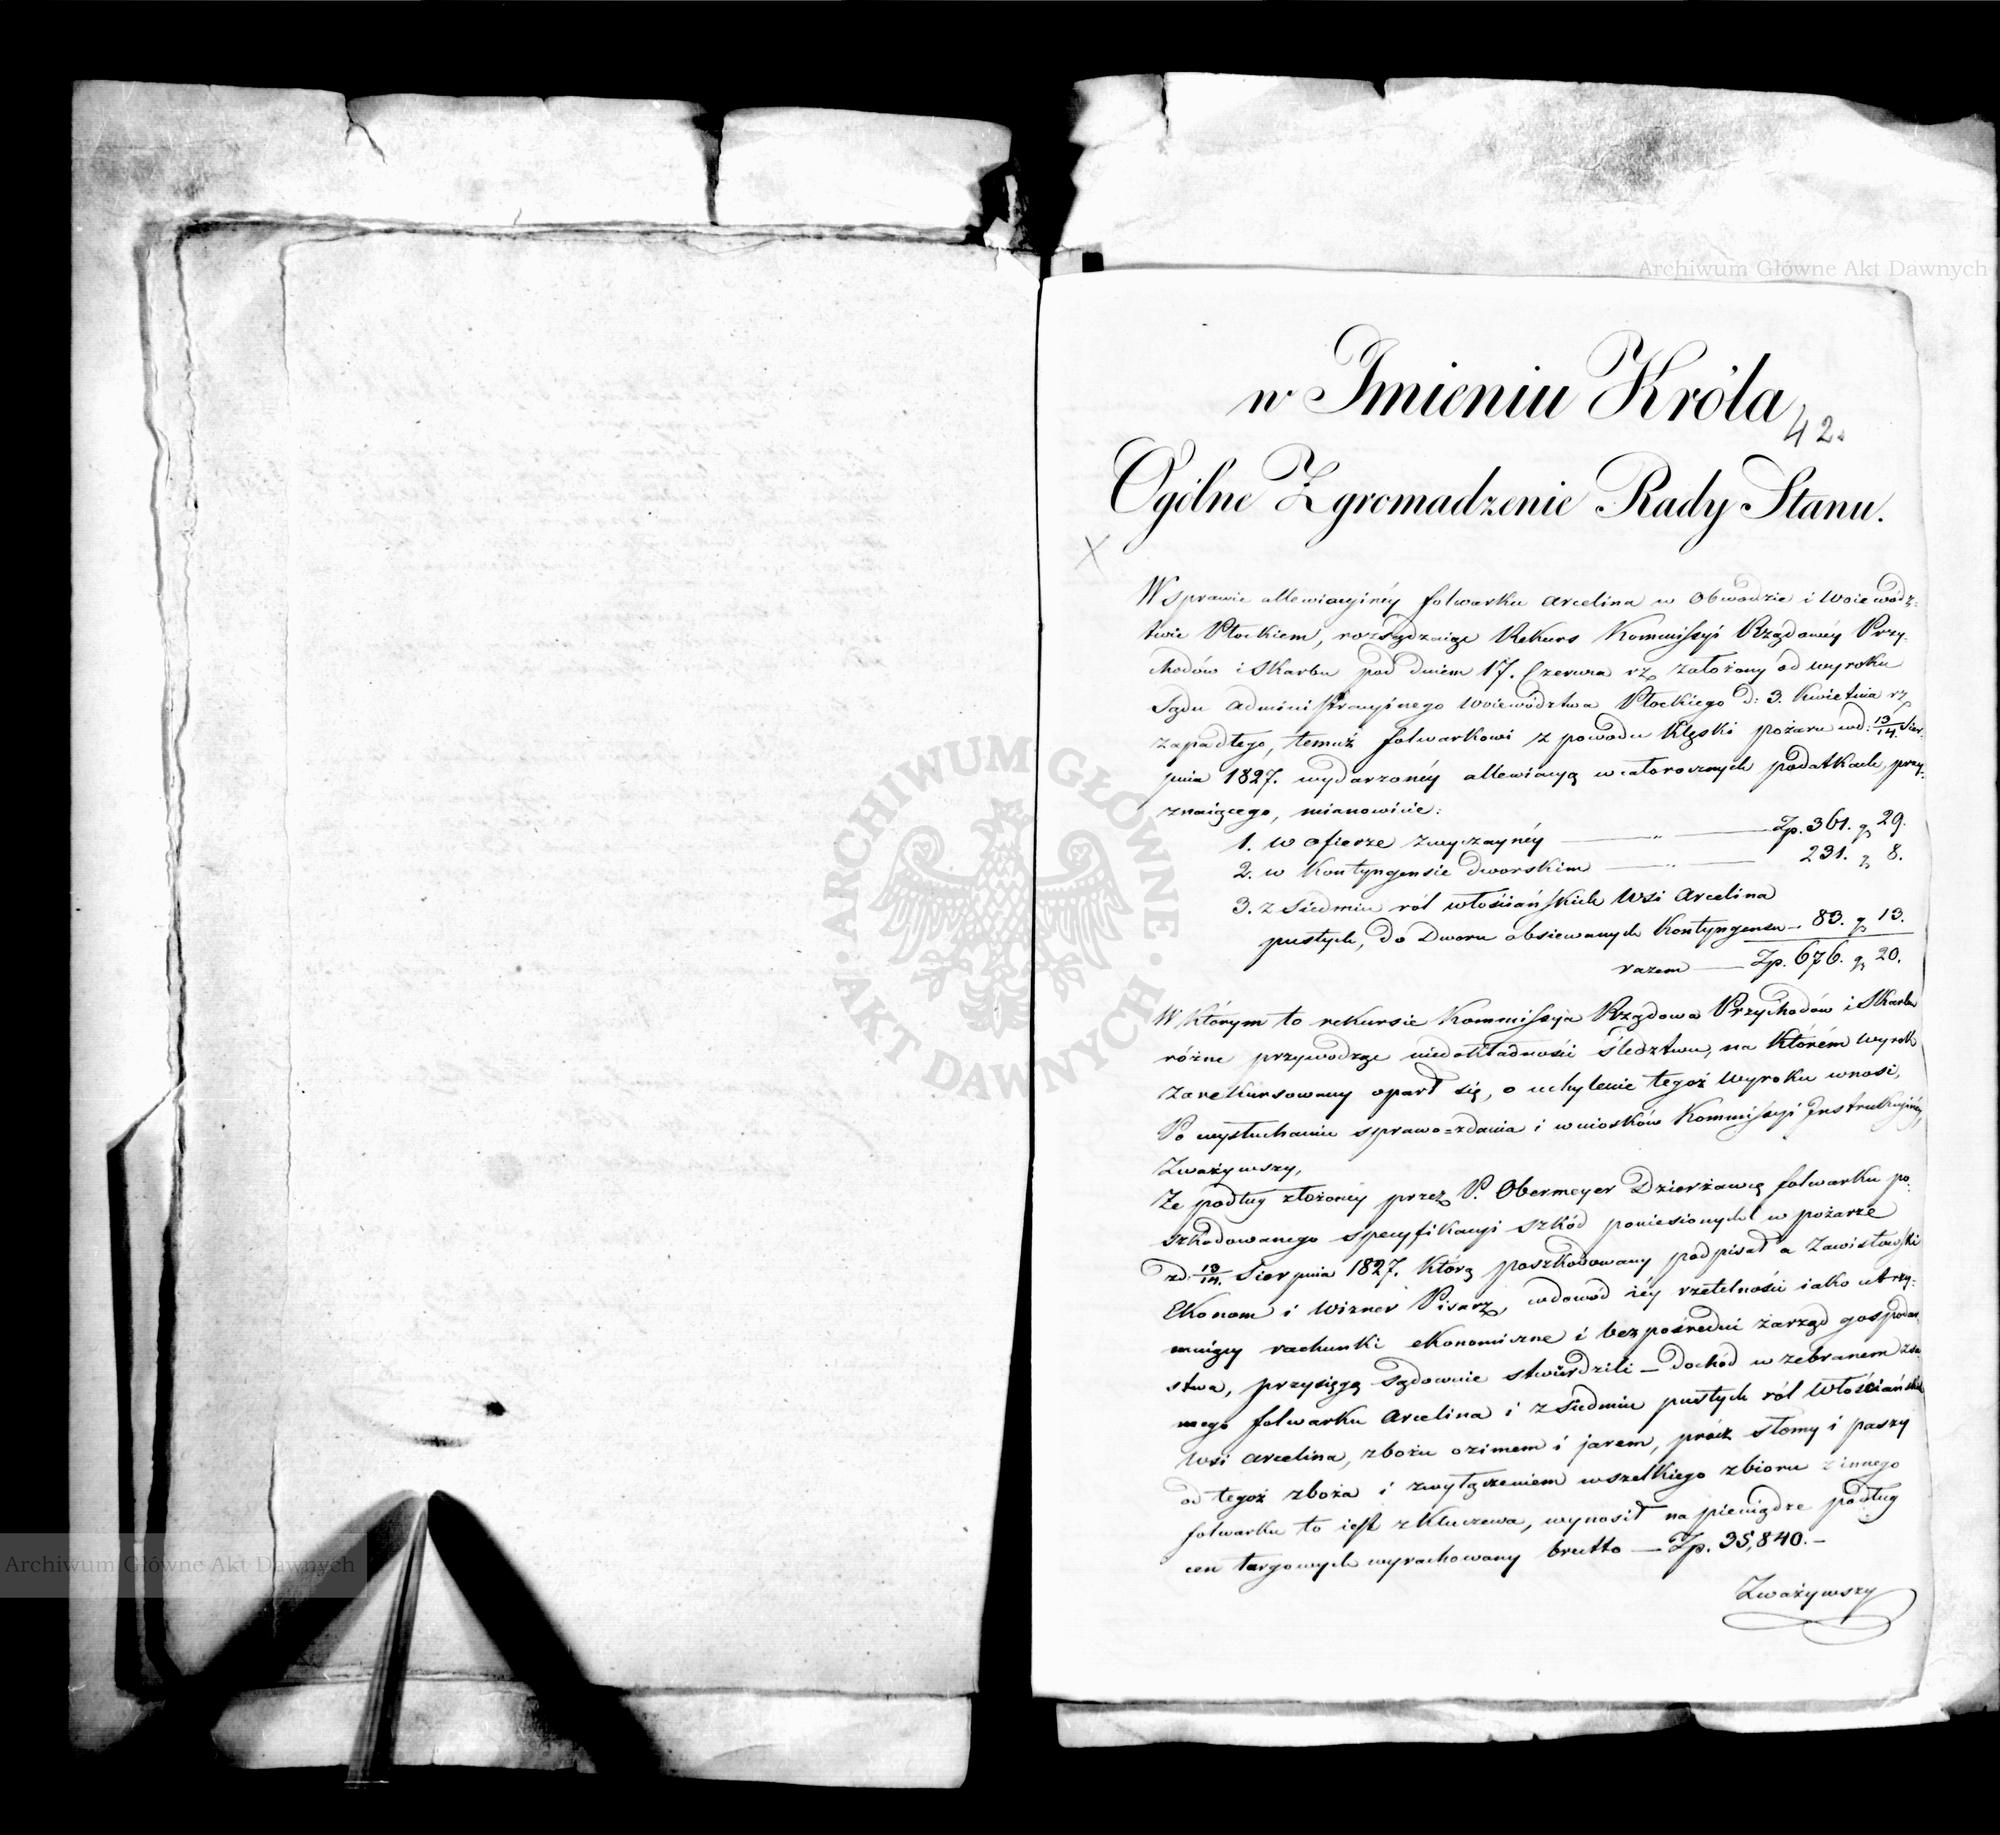 Archiwum Główne Akt Dawnych
w Imieniu Króla
42.
Ogólne Zgromadzenie Rady Stanu.
X
W sprawie allewiacyinéy folwarku Arcelina w Obwodzie i Woiewódz-
twie Płockiem, rozsądzaiąc Rekurs Kommissyi Rządowéy Przy-
chodów i Skarbu pod dniem 17. Czerwca rz. założony od wyroku
Sądu Administracyinego Woiewództwa Płockiego d: 3. Kwietnia rz.
zapadłego, temuż folwarkowi z powodu klęski pożaru w d: 13/14. Sier-
pnia 1827. wydarzonéy allewiacyą w całorocznych podatkach, przy-
znaiącego, mianowicie:
1. w ofierze zwyczaynéy — „ — Zp. 361. g 29.
2. w Kontyngensie dworskim — „ — 231. g 8.
3. z siedmiu ról włościańskich Wsi Arcelina
pustych, do Dworu obsiewanych Kontyngensu — 83. g 13.
razem — Zp. 676. g 20.
W którym to rekursie Kommissyia Rządowa Przychodów i Skarbu
różne przywodząc niedokładności śledztwa, na którém wyrok
zarekursowany oparł się, o uchylenie tegoż wyroku wnosi,
Po wysłuchaniu sprawo=zdania i wniosków Kommissyi Instrukcyinéy,
Zważywszy,
Że podług złożonéy przez P. Obermeyer Dzierżawcę folwarku po-
szkodowanego specyfikacyi szkód poniesionych w pożarze
z d: 13/14. Sierpnia 1827. którą poszkodowany podpisał a Zawistowski
Ekonom i Wizner Pisarz, w dowód iéy rzetelności iako utrzy-
muiący rachunki ekonomiczne i bezpośredni zarząd gospodar-
stwa, przysięgą sądownie stwierdzili — dochód w zebranem z sa-
mego folwarku Arcelina i z siedmiu pustych ról Włościańskich
Wsi Arcelina, zbożu ozimem i jarem, prócz słomy i paszy
od tegoż zboża i z wyłączeniem wszelkiego zbioru z innego
folwarku to iest z Kluczewa, wynosił na pieniądze podług
cen targowych wyrachowany brutto — Zp. 35,840. —
Zważywszy
ARCHIWUM GŁÓWNE · AKT DAWNYCH ·
Archiwum Główne Akt Dawnych